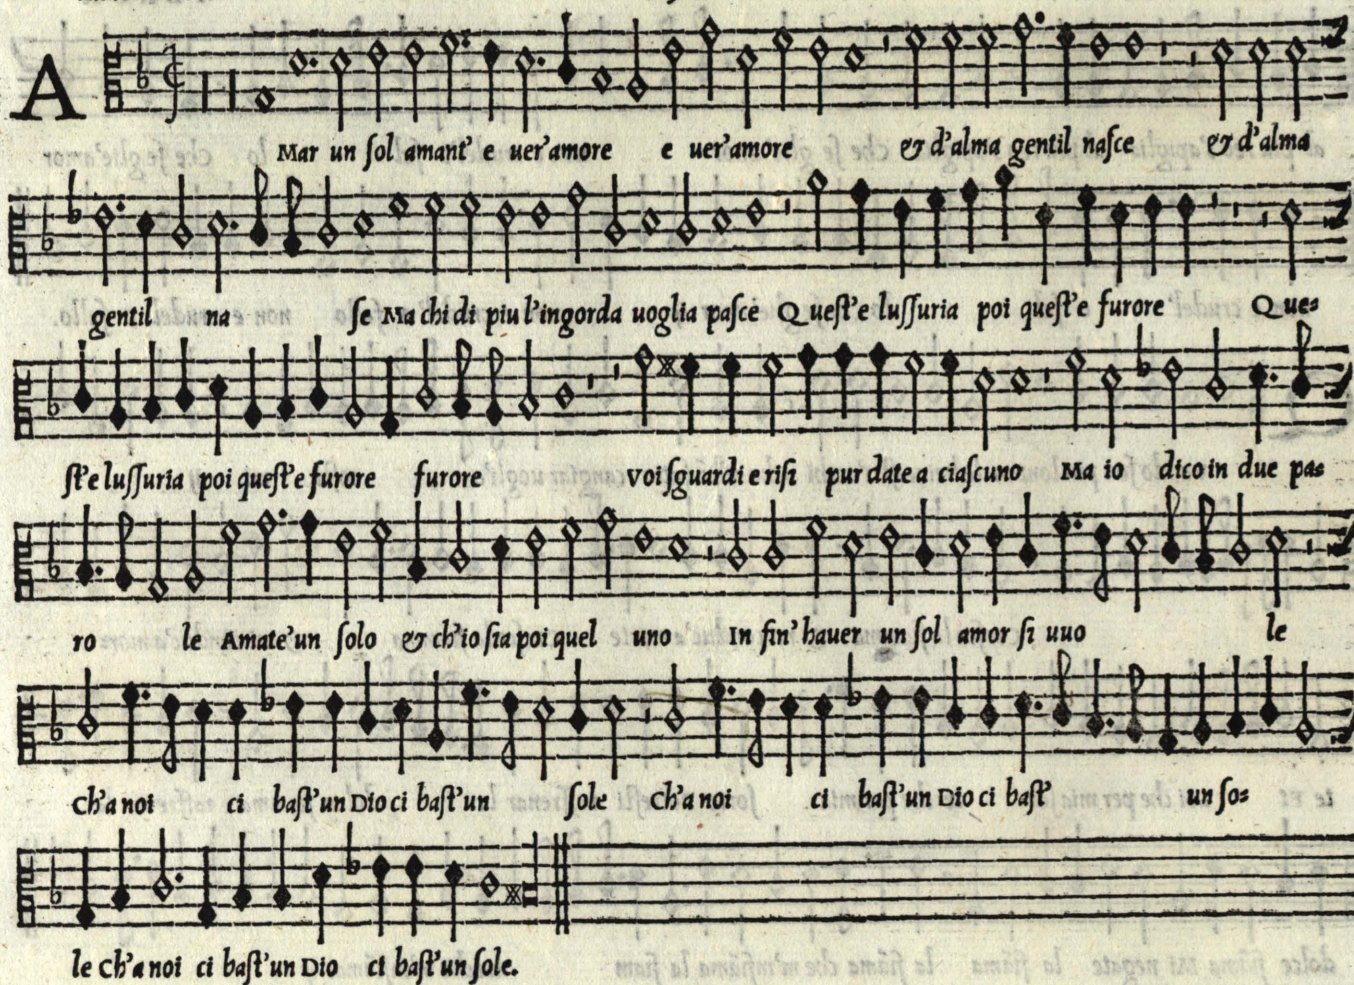 AMar un ſol amant' e uer'amore e uer'amore & d'alma gentil naſce & d'alma
gentil na ſe Ma chi di piu l'ingorda uoglia paſce Queſt'e luſſuria poi queſt'e furore Que=
ſt'e luſſuria poi queſt'e furore furore Voi ſguardi e riſi pur date a ciaſcuno Ma io dico in due pa=
ro le Amate'un ſolo & ch'io ſia poi quel uno In fin' hauer un ſol amor ſi uuo le
Ch'a noi ci baſt'un Dio ci baſt'un ſole Ch'a noi ci baſt'un Dio ci baſt' un ſo=
le Ch'a noi ci baſt'un Dio ci baſt'un ſole.